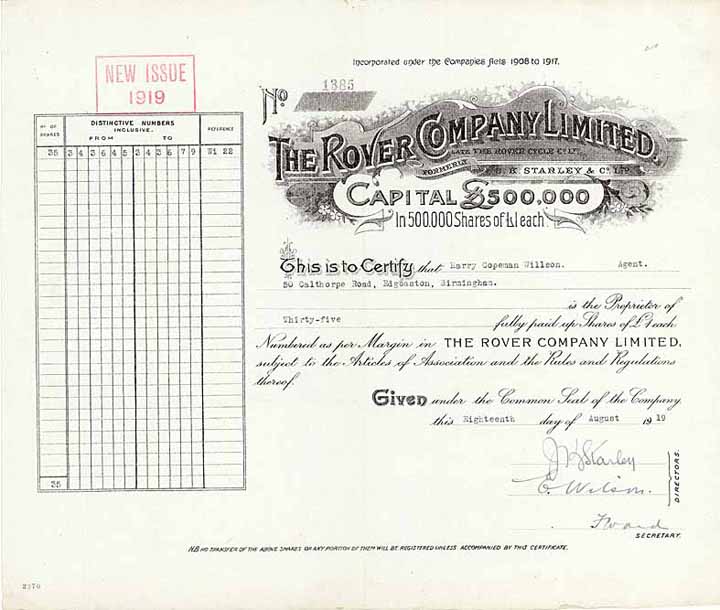 Incorporated under the Companies Acts 1908 to 1917.
NEW ISSUE
1919
No 1385
THE ROVER COMPANY LIMITED.
LATE THE ROVER CYCLE Co LTD.
FORMERLY J. K. STARLEY & Co LTD.
CAPITAL £500,000
In 500,000 Shares of £1 each.
No OF SHARES DISTINCTIVE NUMBERS INCLUSIVE. REFERENCE
FROM TO
35 343645 343679 W1 22
This is to Certify that Harry Copeman Willson. Agent.
50 Calthorpe Road, Edgbaston, Birmingham.
is the Proprietor of
Thirty-five fully paid up Shares of £1 each
Numbered as per Margin in THE ROVER COMPANY LIMITED,
subject to the Articles of Association and the Rules and Regulations
thereof.
Given under the Common Seal of the Company
this Eighteenth day of August 1919
J K Starley
E. Wilson.
DIRECTORS.
SECRETARY.
35
N.B NO TRANSFER OF THE ABOVE SHARES OR ANY PORTION OF THEM WILL BE REGISTERED UNLESS ACCOMPANIED BY THIS CERTIFICATE.